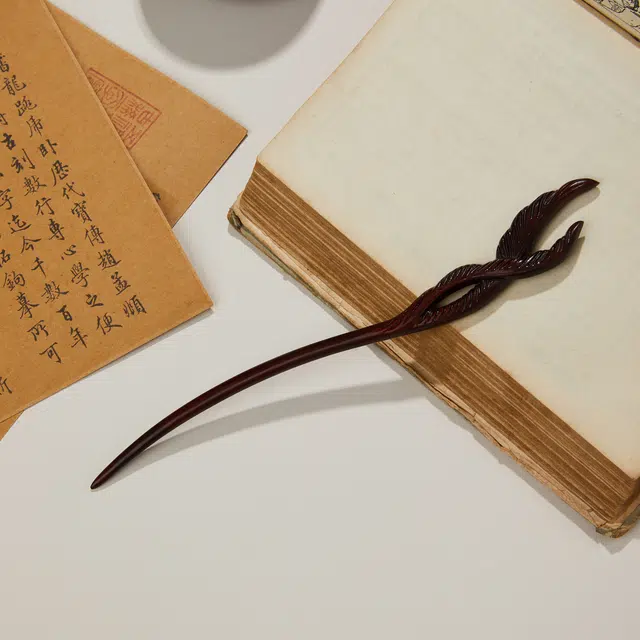 龍跳虎卧歷代寶傳趙孟頫
古刻數行專心學之便
字迄今千數百年
鉤摹所可